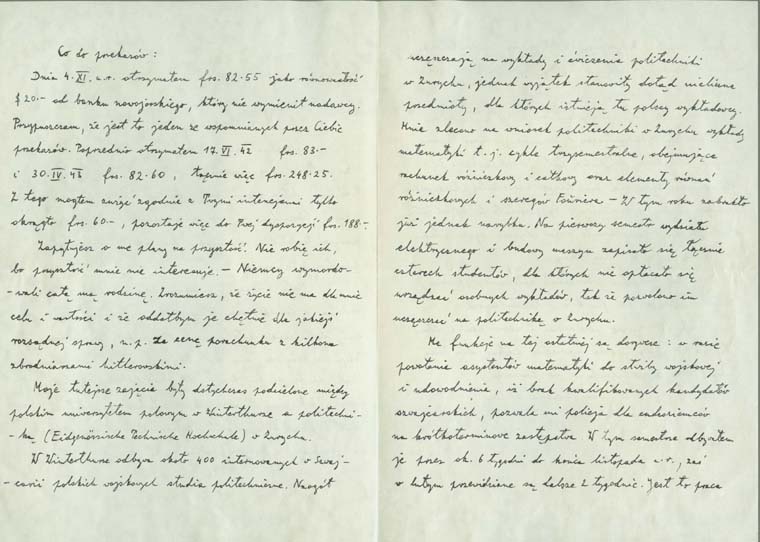 Co do przekazów:
Dnia 4.XI. u.r. otrzymałem frs. 82.55 jako równowartość
$ 20.- od banku nowojorskiego, który nie wymienił nadawcy.
Przypuszczam, że jest to jeden ze wspomnianych przez Ciebie
przekazów. Poprzednio otrzymałem 17.VI.42 frs. 83.-
i 30.IV.43 frs. 82.60, łącznie więc frs. 248.25.
Z tego mogłem zużyć zgodnie z Twymi intencjami tylko
okrągło frs. 60.-, pozostaje więc do Twej dyspozycji frs. 188.-
Zapytujesz o me plany na przyszłość. Nie robię ich,
bo przyszłość mnie nie interesuje. - Niemcy wymordo-
-wali całą mą rodzinę. Zrozumiesz, że życie nie ma dla mnie
celu i wartości i że oddałbym je chętnie dla jakiejś
rozsądnej sprawy, n.p. za cenę porachunku z kilkoma
zbrodniarzami hitlerowskimi.
Moje tutejsze zajęcia były dotychczas podzielone między
polskim uniwersytetem polowym w Winterthurze a politechni-
-ką (Eidgenössische Technische Hochschule) w Zurychu.
W Winterthurze odbywa około 400 internowanych w Szwaj-
-carii polskich wojskowych studia politechniczne. Naogół
uczęszczają na wykłady i ćwiczenia politechniki
w Zurychu, jednak wyjątek stanowiły dotąd nieliczne
przedmioty, dla których istnieją tu polscy wykładowcy.
Mnie zlecono na wniosek politechniki w Zurychu wykłady
matematyki t.j. cykle trzysemestralne, obejmujące
rachunek różniczkowy i całkowy oraz elementy równań
różniczkowych i szeregów Fouriera - W tym roku zabrakło
już jednak narybku. Na pierwszy semestr wydziału
elektrycznego i budowy maszyn zapisało się łącznie
czterech studentów, dla których nie opłacało się
urządzać osobnych wykładów, tak że pozwolono im
uczęszczać na politechnikę w Zurychu.
Me funkcje na tej ostatniej są dorywcze: w razie
powołania asystentów matematyki do służby wojskowej
i udowodnienia, iż brak kwalifikowanych kandydatów
szwajcarskich, pozwala mi policja dla cudzoziemców
na krótkoterminowe zastępstwa. W tym semestrze odbyłem
je przez ok. 6 tygodni do końca listopada u.r., zaś
w lutym przewidziane są dalsze 2 tygodnie. Jest to praca